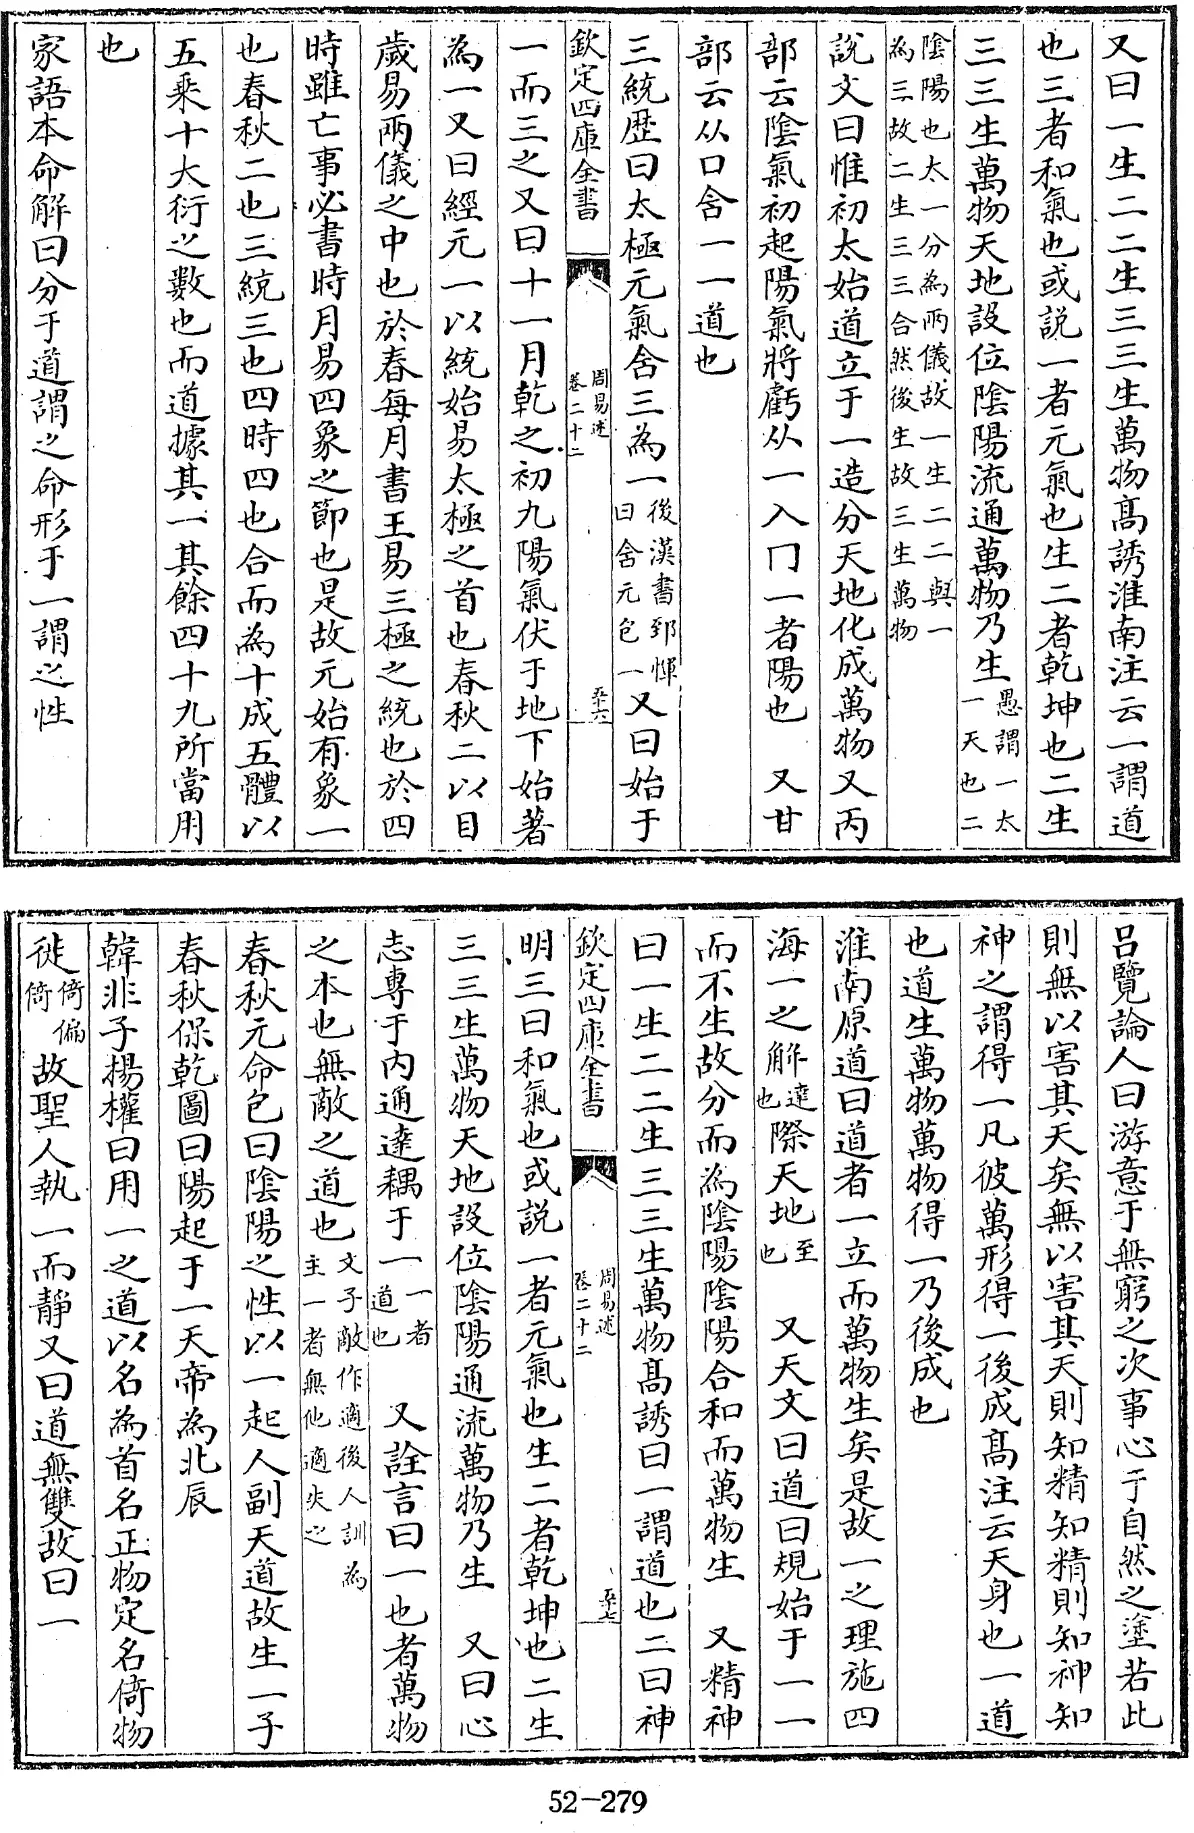 又曰一生二二生三三生萬物髙誘淮南注云一謂道
也三者和氣也或説一者元氣也生二者乾坤也二生
三三生萬物天地設位陰陽流通萬物乃生愚謂一太一天也二
陰陽也太一分為兩儀故一生二二與一為三故二生三三合然後生故三生萬物
説文曰惟初太始道立于一造分天地化成萬物又丙
部云陰氣初起陽氣將虧从一入冂一者陽也 又甘
部云从口含一一道也
三統歴曰太極元氣含三為一後漢書郅惲曰含元包一又曰始于
欽定四庫全書 周易述卷二十二 五十六
一而三之又曰十一月乾之初九陽氣伏于地下始著
為一又曰經元一以統始易太極之首也春秋二以目
歲易兩儀之中也於春每月書王易三極之統也於四
時雖亡事必書時月易四象之節也是故元始有象一
也春秋二也三統三也四時四也合而為十成五體以
五乘十大衍之數也而道據其一其餘四十九所當用
也
家語本命解曰分于道謂之命形于一謂之性
吕覽論人曰游意于無窮之次事心于自然之塗若此
則無以害其天矣無以害其天則知精知精則知神知
神之謂得一凡彼萬形得一後成髙注云天身也一道
也道生萬物萬物得一乃後成也
淮南原道曰道者一立而萬物生矣是故一之理施四
海一之解達也際天地至也 又天文曰道曰規始于一一
而不生故分而為陰陽陰陽合和而萬物生 又精神
曰一生二二生三三生萬物髙誘曰一謂道也二曰神
欽定四庫全書 周易述卷二十二 五十七
明三曰和氣也或説一者元氣也生二者乾坤也二生
三三生萬物天地設位陰陽通流萬物乃生 又曰心
志專于内通達耦于一一者道也 又詮言曰一也者萬物
之本也無敵之道也文子敵作適後人訓為主一者無他適失之
春秋元命包曰陰陽之性以一起人副天道故生一子
春秋保乾圖曰陽起于一天帝為北辰
韓非子揚權曰用一之道以名為首名正物定名倚物
徙倚偏倚故聖人執一而靜又曰道無雙故曰一
52-279